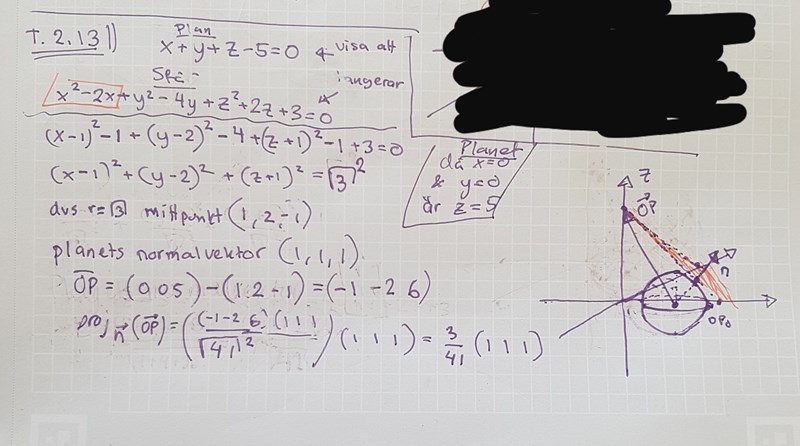 T. 2.13)
Plan
x+y+z-5=0 & visa att
tangerar
x²-2x+y²-4y+z²+2z+3=0
(x-1)²-1+(y-2)²-4+(z+1)²-1+3=0
(x-1)²+(y-2)²+(z+1)²=√3²
dvs r=√3 mittpunkt (1,2,-1)
planets normalvektor (1,1,1)
OP = (0 0 5) - (1 2 -1) = (-1 -2 6)
proj n (OP) = ((-1 -2 6)(1 1 1 / √41²) (1 1 1) = 3/41 (1 1 1)
Planet
då x=0
& y=0
är z=5
z
OP
n
OP₀